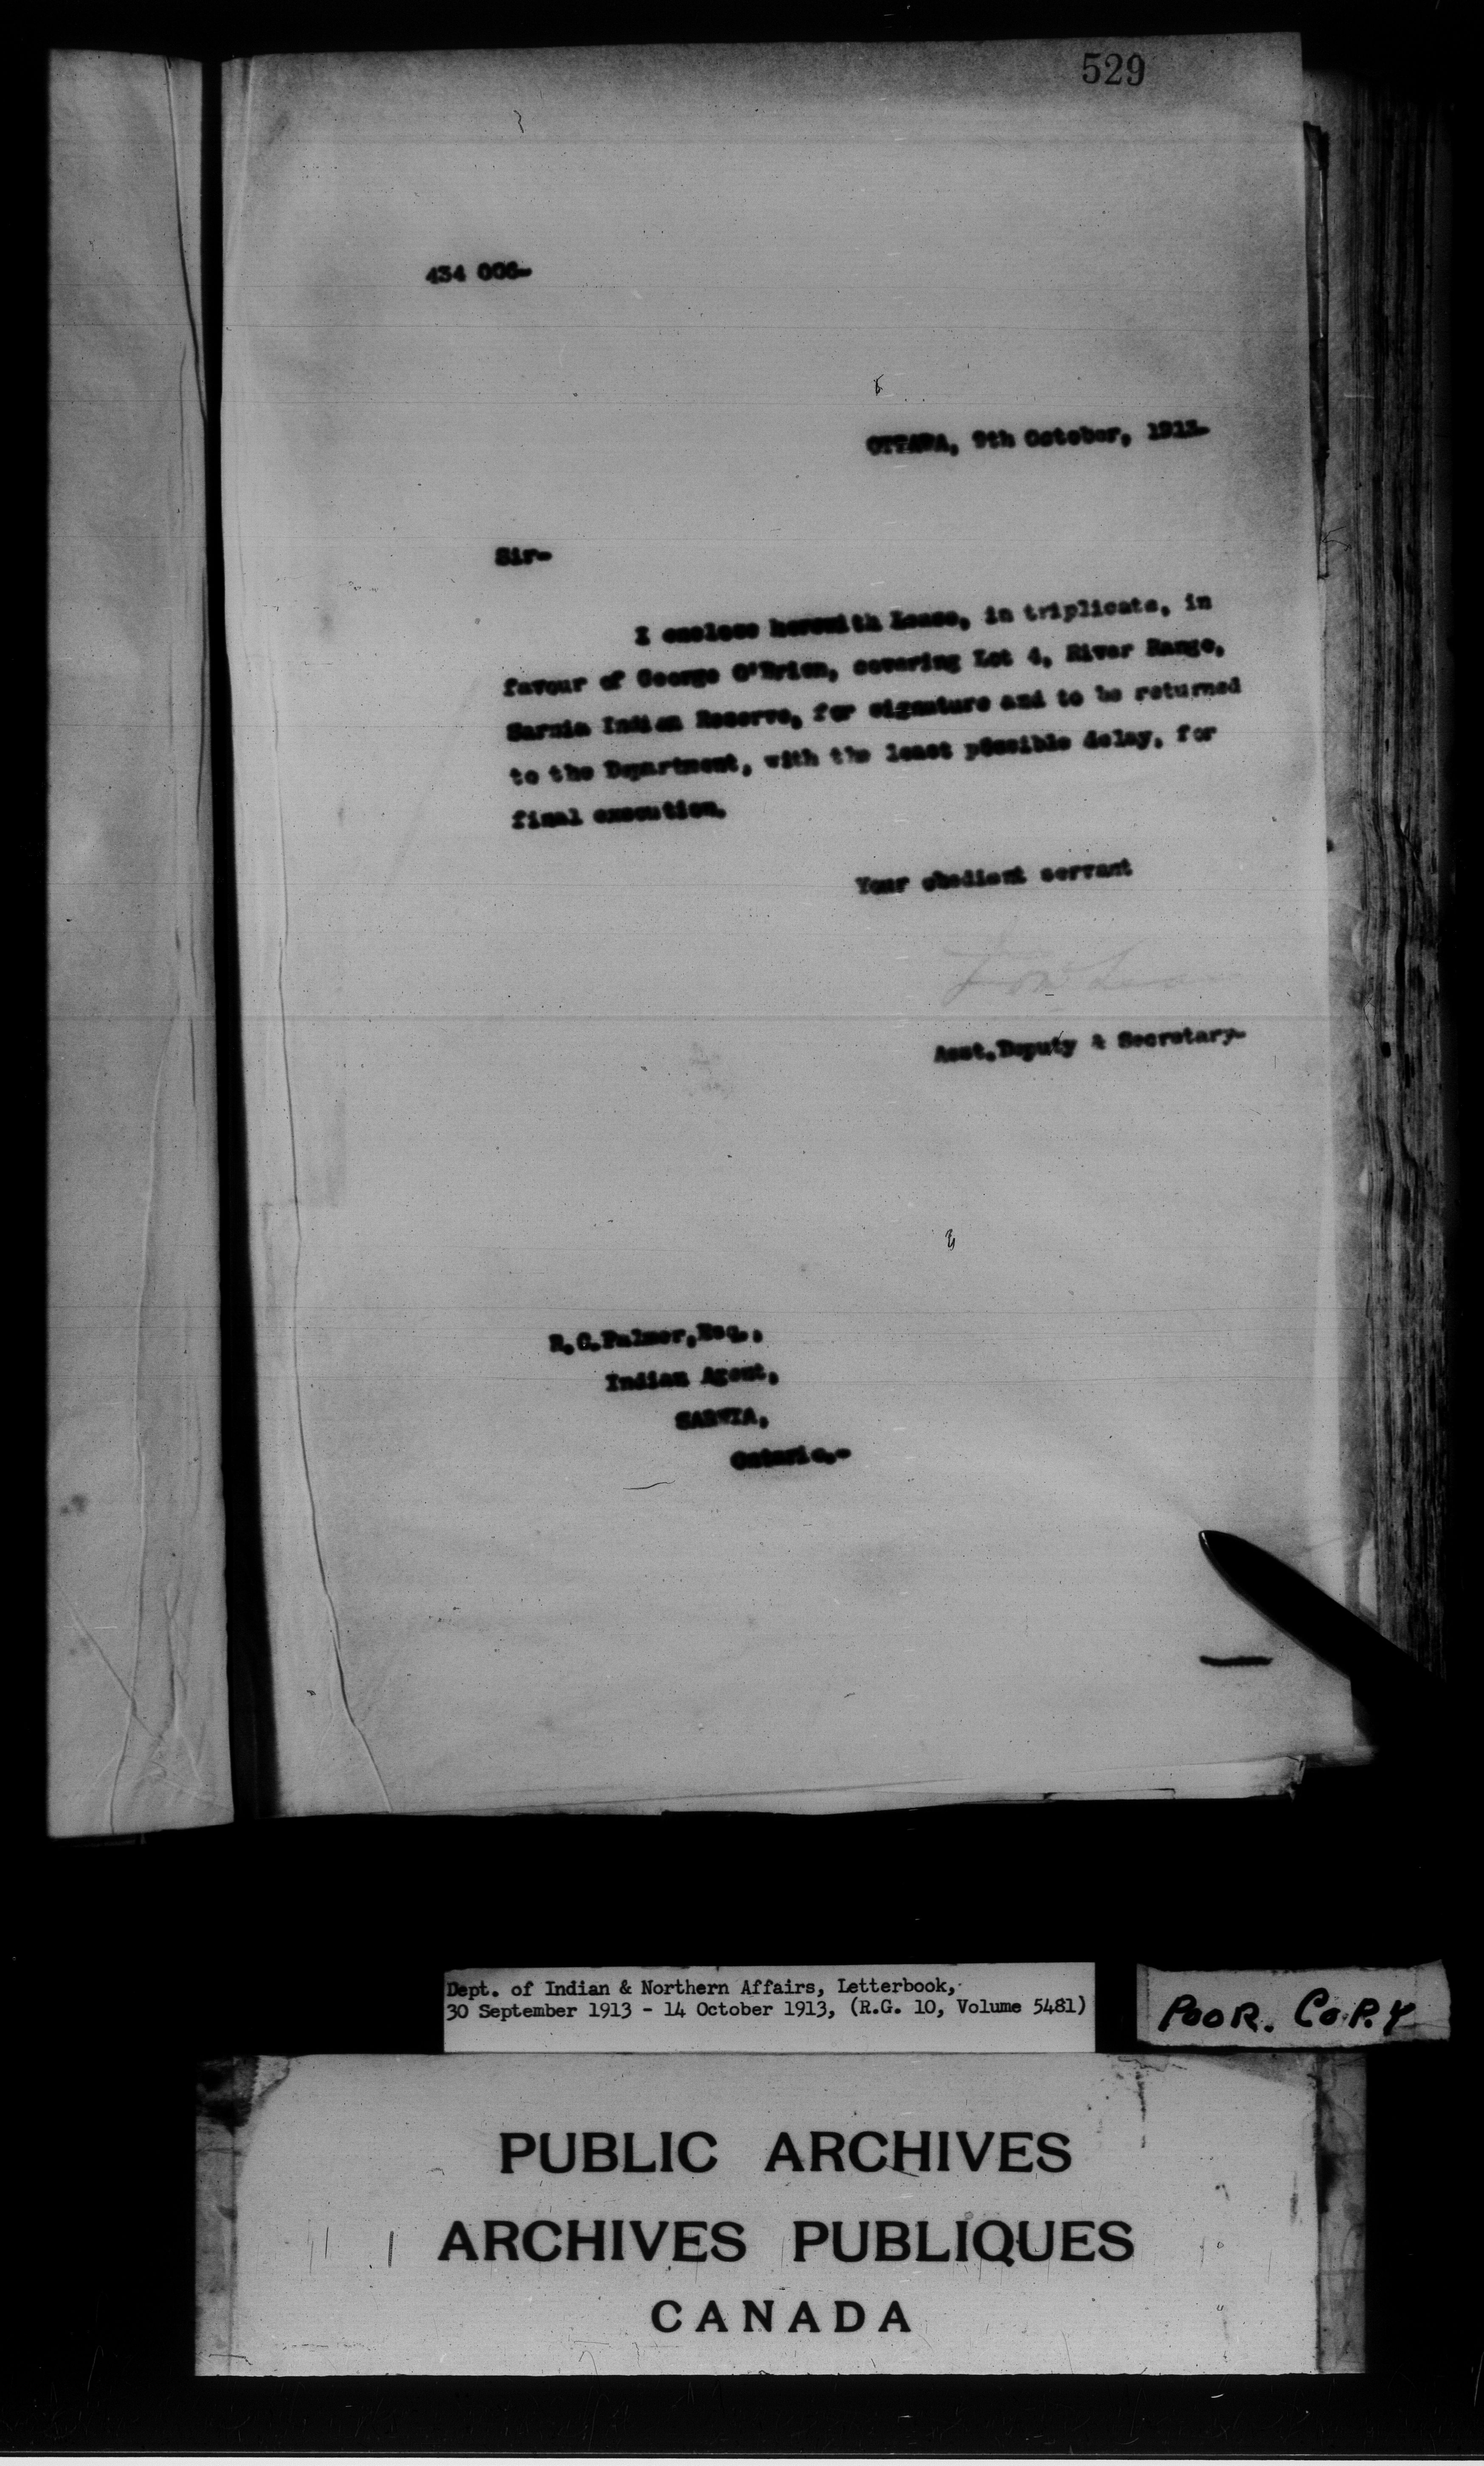 529
434 006-
OTTAWA, 9th October, 1913-
Sir-
I enclose herewith Lease, in triplicate, in
favour of George O'Brien, covering Lot 4, River Range,
Sarnia Indian Reserve, for signature and to be returned
to the Department, with the least possible delay, for
final execution.
Your obedient servant
Asst.Deputy & Secretary-
R.C.Palmer,Esq.,
Indian Agent,
SARNIA,
Ontario.-
Dept. of Indian & Northern Affairs, Letterbook,
30 September 1913 - 14 October 1913, (R.G. 10, Volume 5481)
POOR. COPY
PUBLIC ARCHIVES
ARCHIVES PUBLIQUES
CANADA